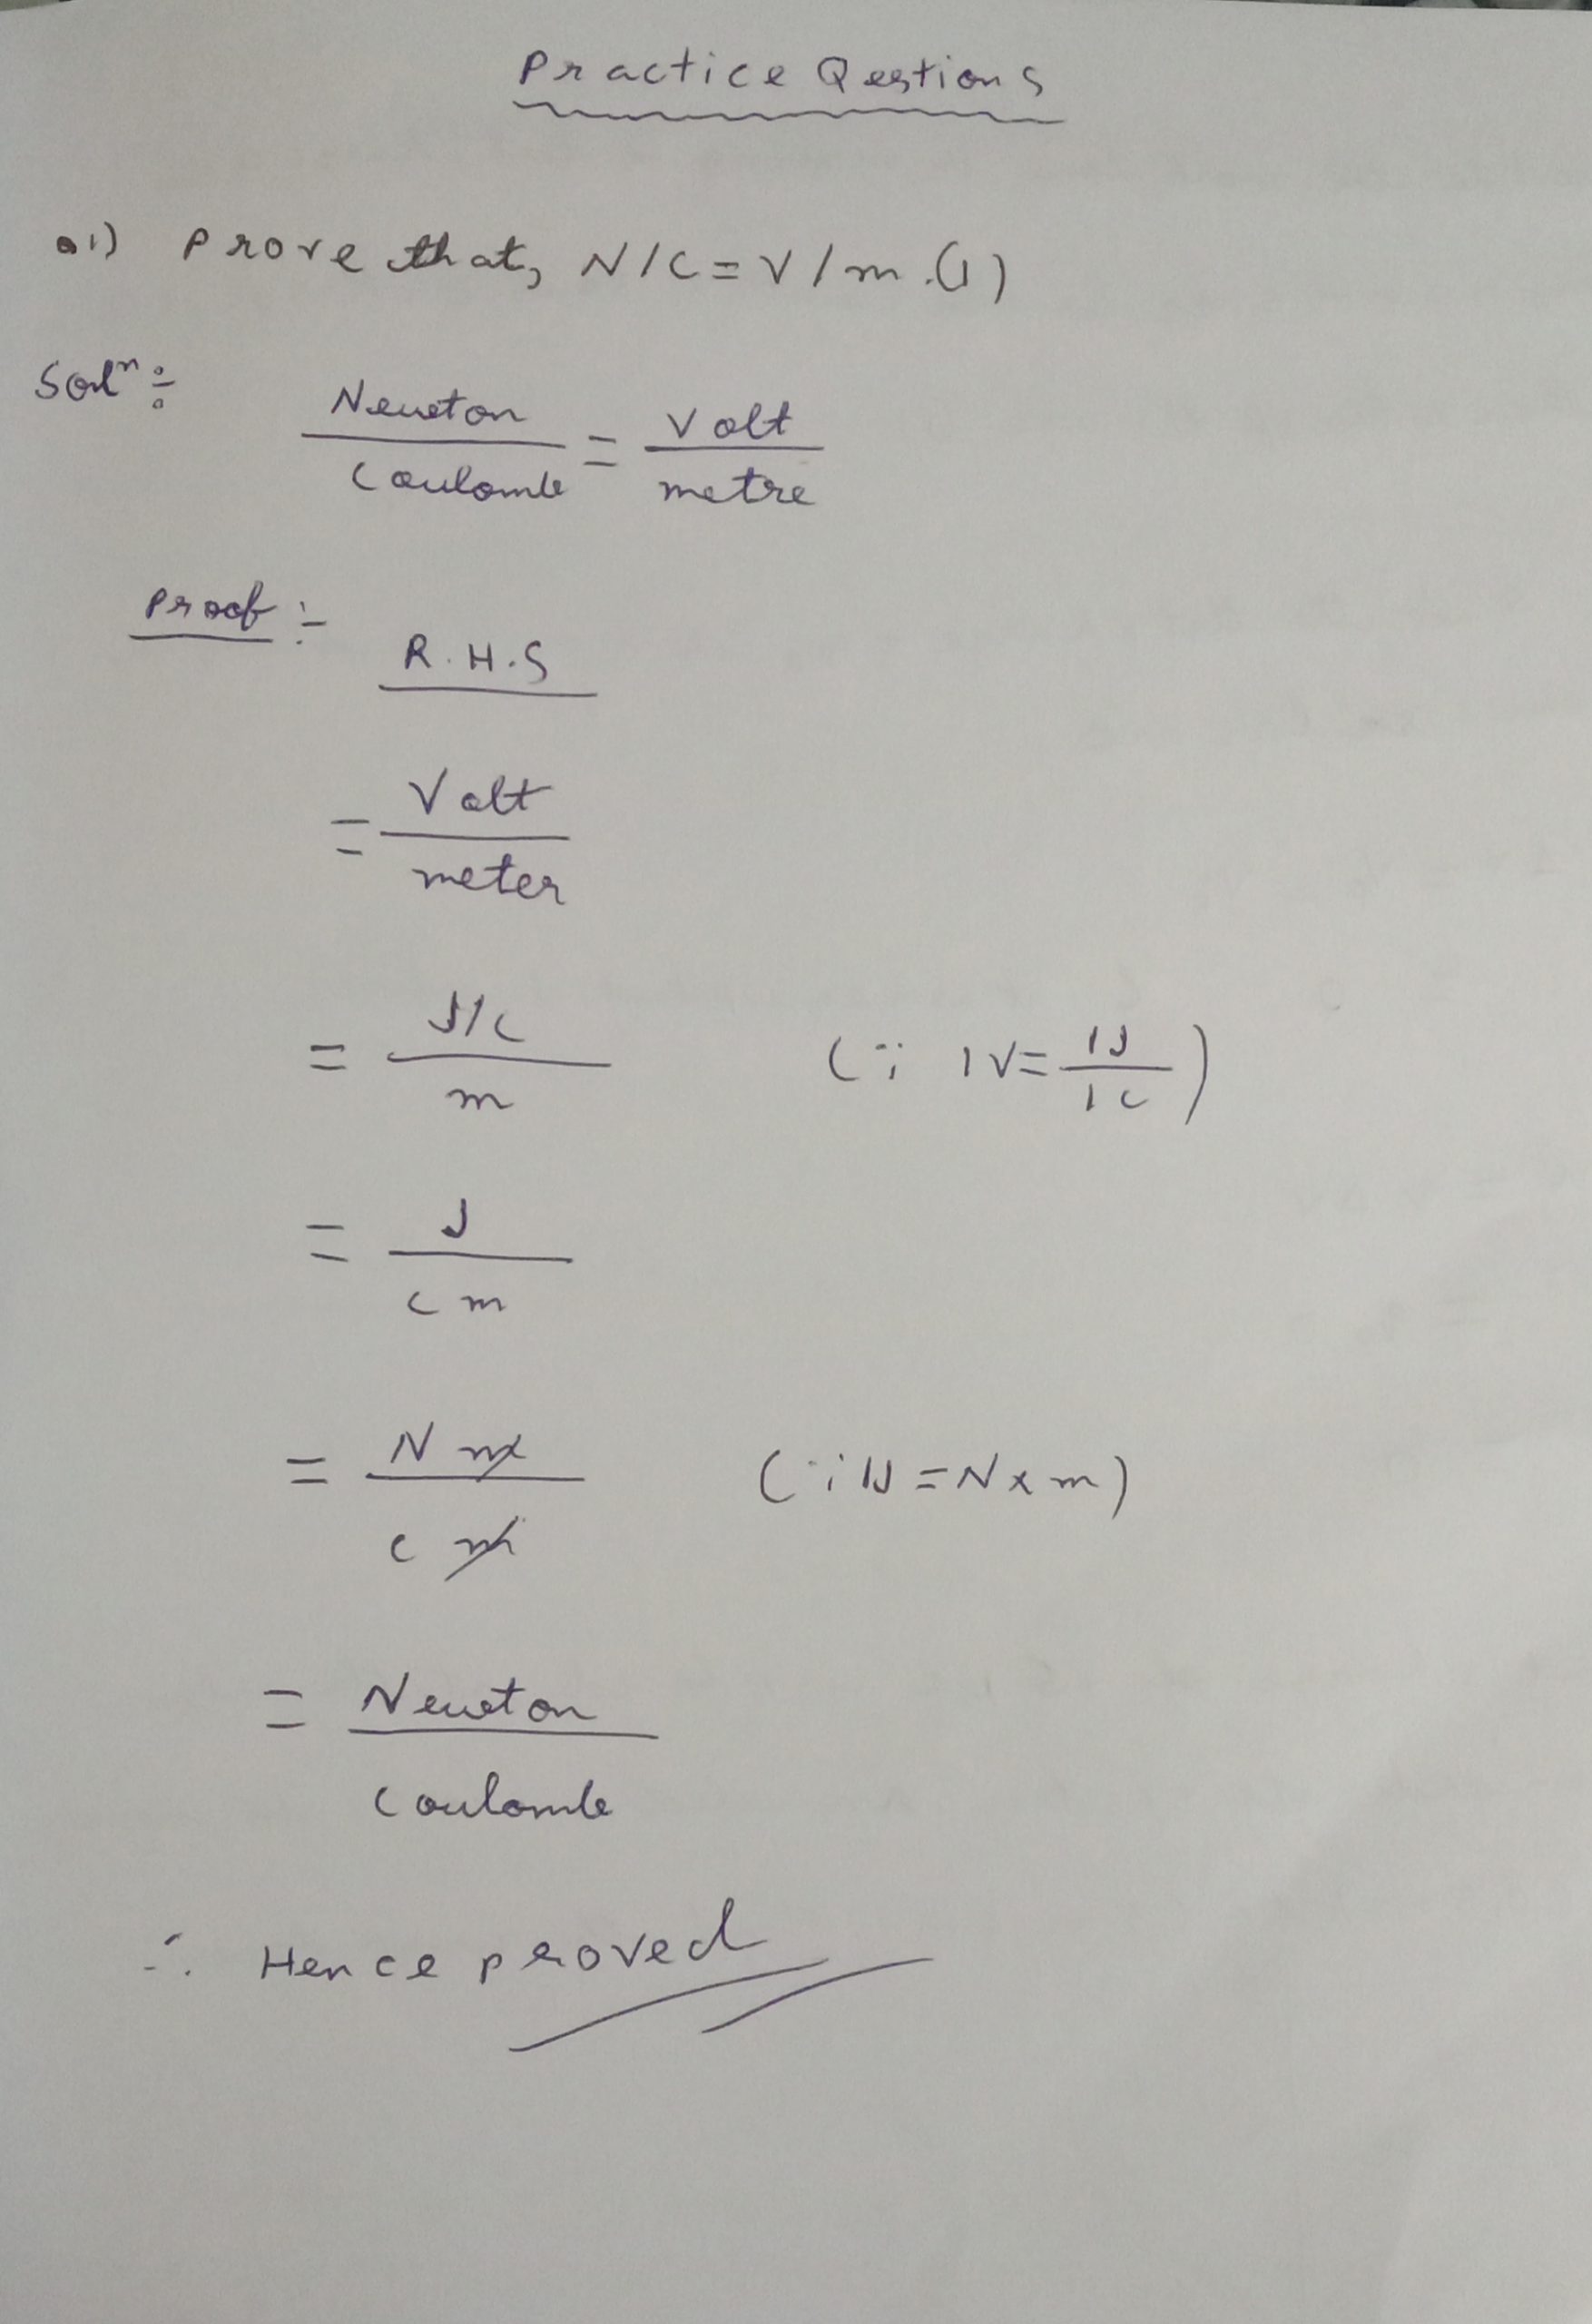 Practice Qestions
Q1) Prove that, N/C = V/m. (1)
Solⁿ ÷
Newton / Coulomb = Volt / metre
Proof :-
R.H.S
= Volt / meter
= J/C / m (∵ 1V = 1J / 1C)
= J / C m
= N m / C m (∵ 1J = N × m)
= Newton / Coulomb
∴ Hence proved